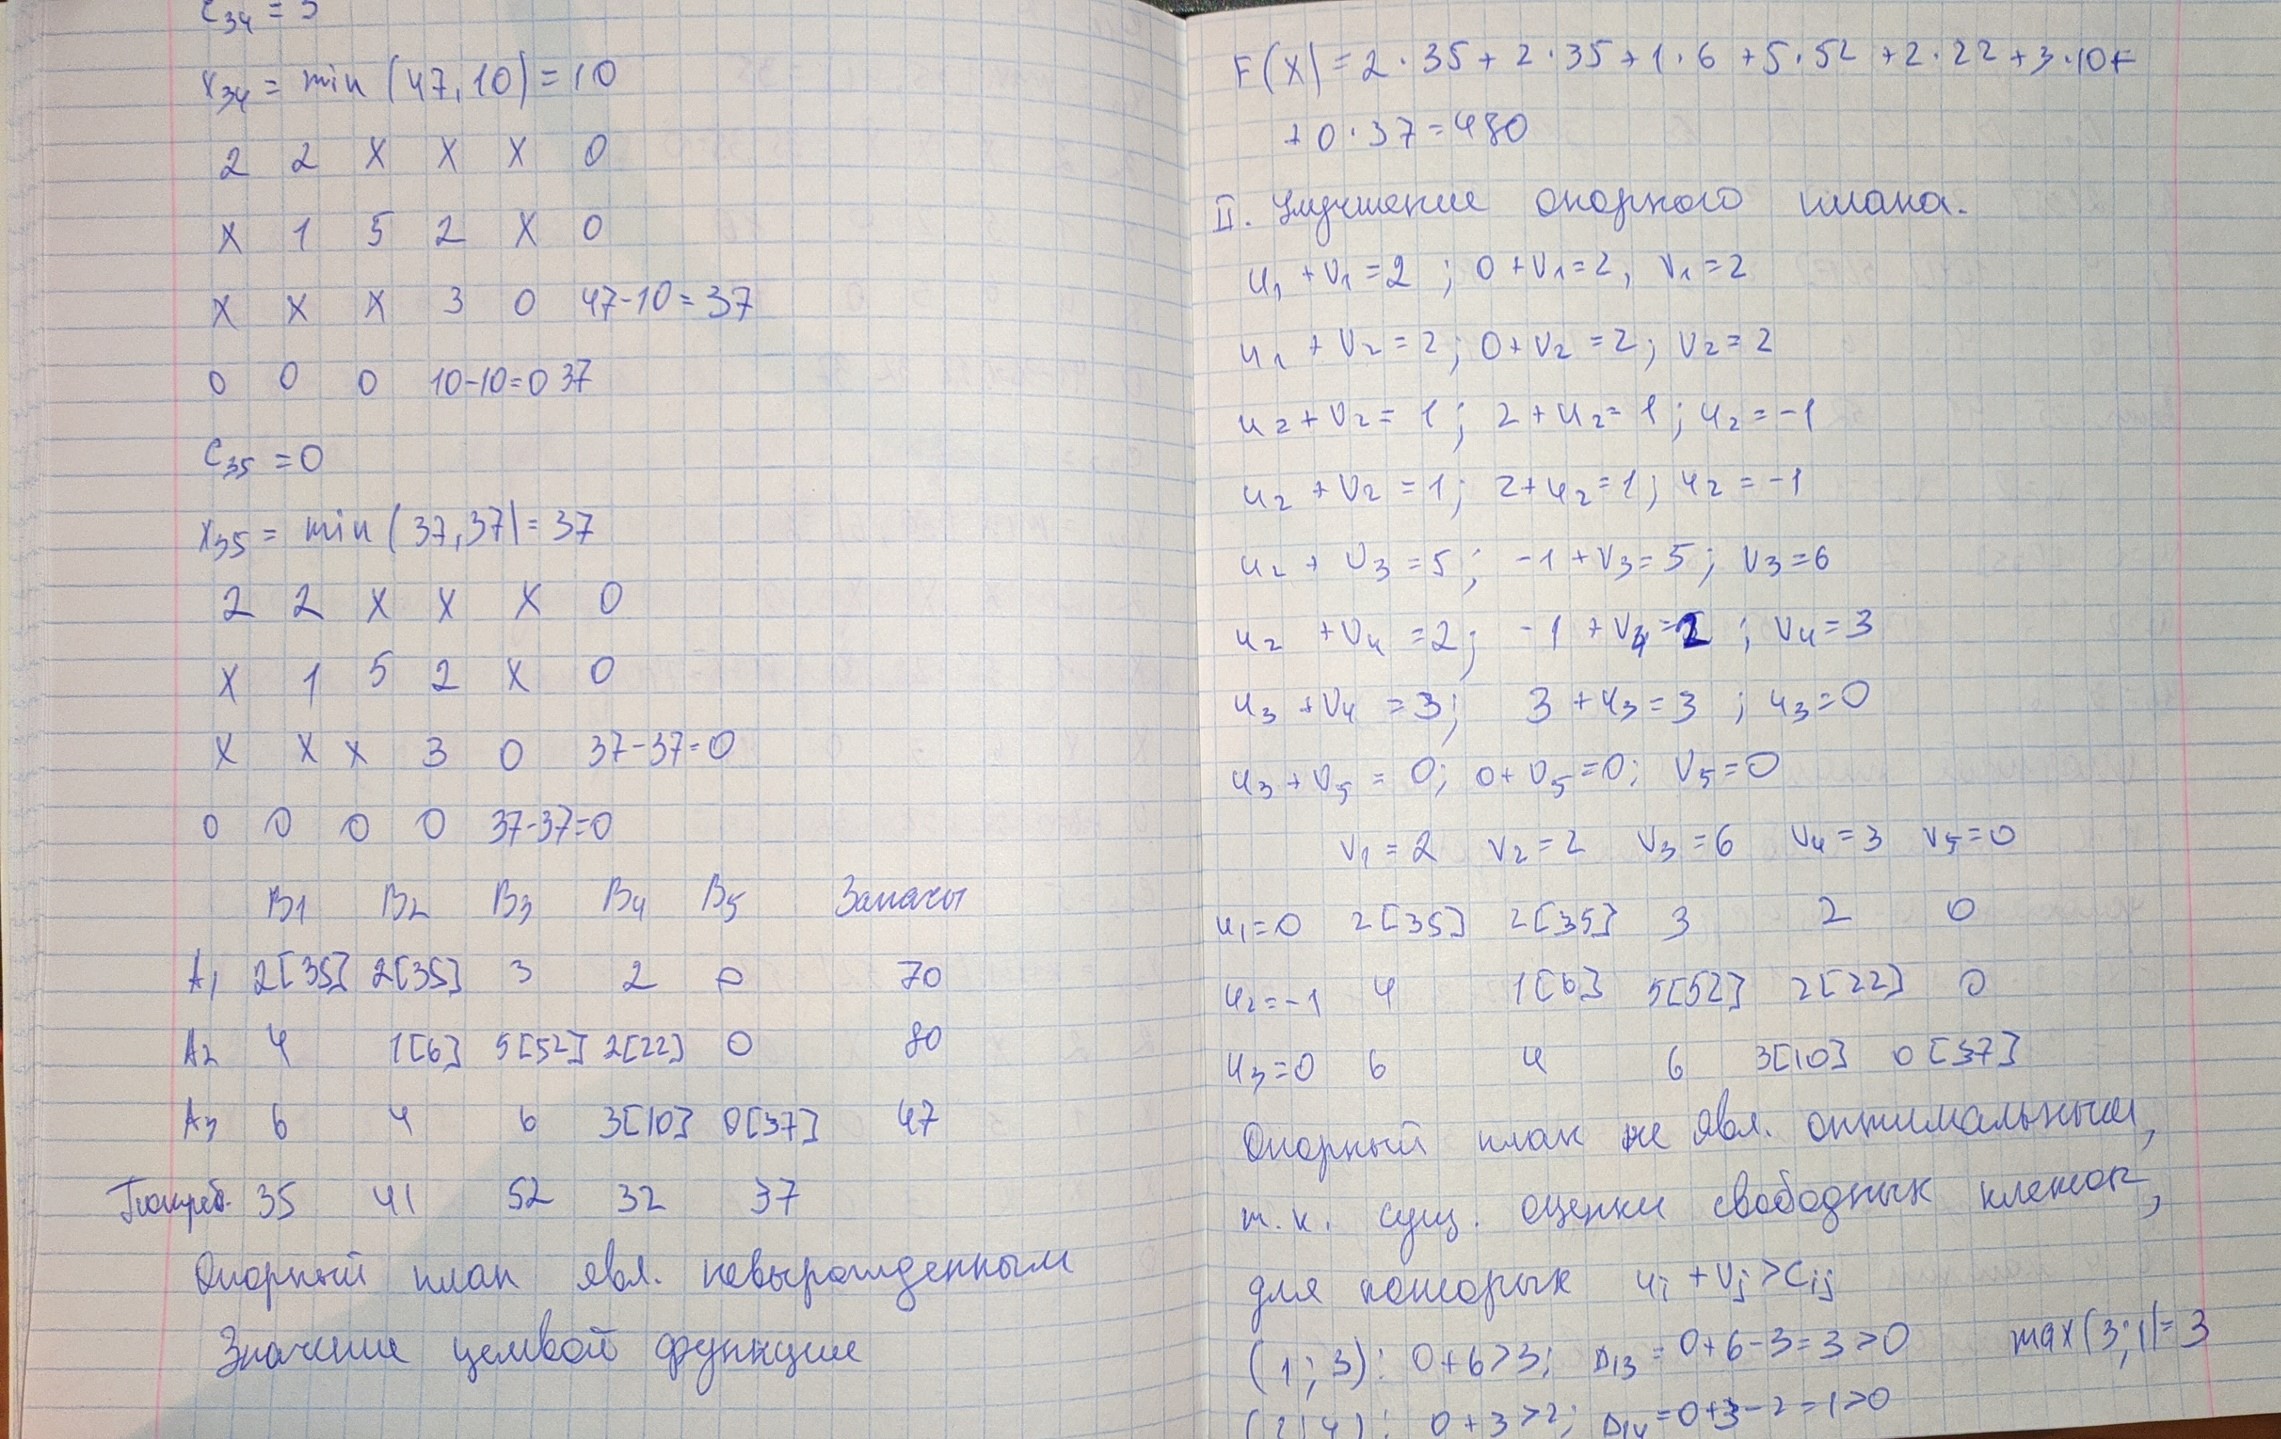 C34 = 3
x34 = min (47,10) = 10
2 2 x x x 0
x 1 5 2 x 0
x x x 3 0 47-10=37
0 0 0 10-10=0 37
C35 = 0
x35 = min (37,37) = 37
2 2 x x x 0
x 1 5 2 x 0
x x x 3 0 37-37=0
0 0 0 0 37-37=0
B1 B2 B3 B4 B5 Запасы
A1 2[35] 2[35] 3 2 0 70
A2 4 1[6] 5[52] 2[22] 0 80
A3 6 4 6 3[10] 0[37] 47
Потреб. 35 41 52 32 37
Опорный план явл. невырожденным
Значение целевой функции
F(x) = 2·35 + 2·35 + 1·6 + 5·52 + 2·22 + 3·10 +
+ 0·37 = 480
II. Улучшение опорного плана.
u1 + v1 = 2; 0 + v1 = 2, v1 = 2
u1 + v2 = 2; 0 + v2 = 2; v2 = 2
u2 + v2 = 1; 2 + u2 = 1; u2 = -1
u2 + v2 = 1; 2 + u2 = 1; u2 = -1
u2 + v3 = 5; -1 + v3 = 5; v3 = 6
u2 + v4 = 2; -1 + v4 = 2; v4 = 3
u3 + v4 = 3; 3 + u3 = 3; u3 = 0
u3 + v5 = 0; 0 + v5 = 0; v5 = 0
v1 = 2 v2 = 2 v3 = 6 v4 = 3 v5 = 0
u1 = 0 2[35] 2[35] 3 2 0
u2 = -1 4 1[6] 5[52] 2[22] 0
u3 = 0 6 4 6 3[10] 0[37]
Опорный план не явл. оптимальным,
т.к. сущ. оценки свободных клеток,
для которых ui + vj > cij
(1; 3): 0+6>3; Δ13 = 0+6-3 = 3>0 max(3;1) = 3
0+3>2; Δ14 = 0+3-2 = 1>0